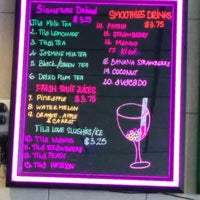 Signature Drinks
$3.75
1. Tila Milk Tea
2. Tila Lemonade
3. Thai Tea
4. Jasmine Milk Tea
5. Black/Green Tea
6. Dried Plum Tea
Fresh Fruit Juices
7. Pineapple $3.75
8. Watermelon
9. Orange, Apple
& Carrot
Smoothies Drinks
14. Papaya $3.75
15. Strawberry
16. Mango
17. Kiwi
18. Banana Strawberry
19. Coconut
20. Avocado
Tila Love Slushies/Ice
10. Tila Mango $3.25
11. Tila Strawberry
12. Tila Peach
13. Tila Passion